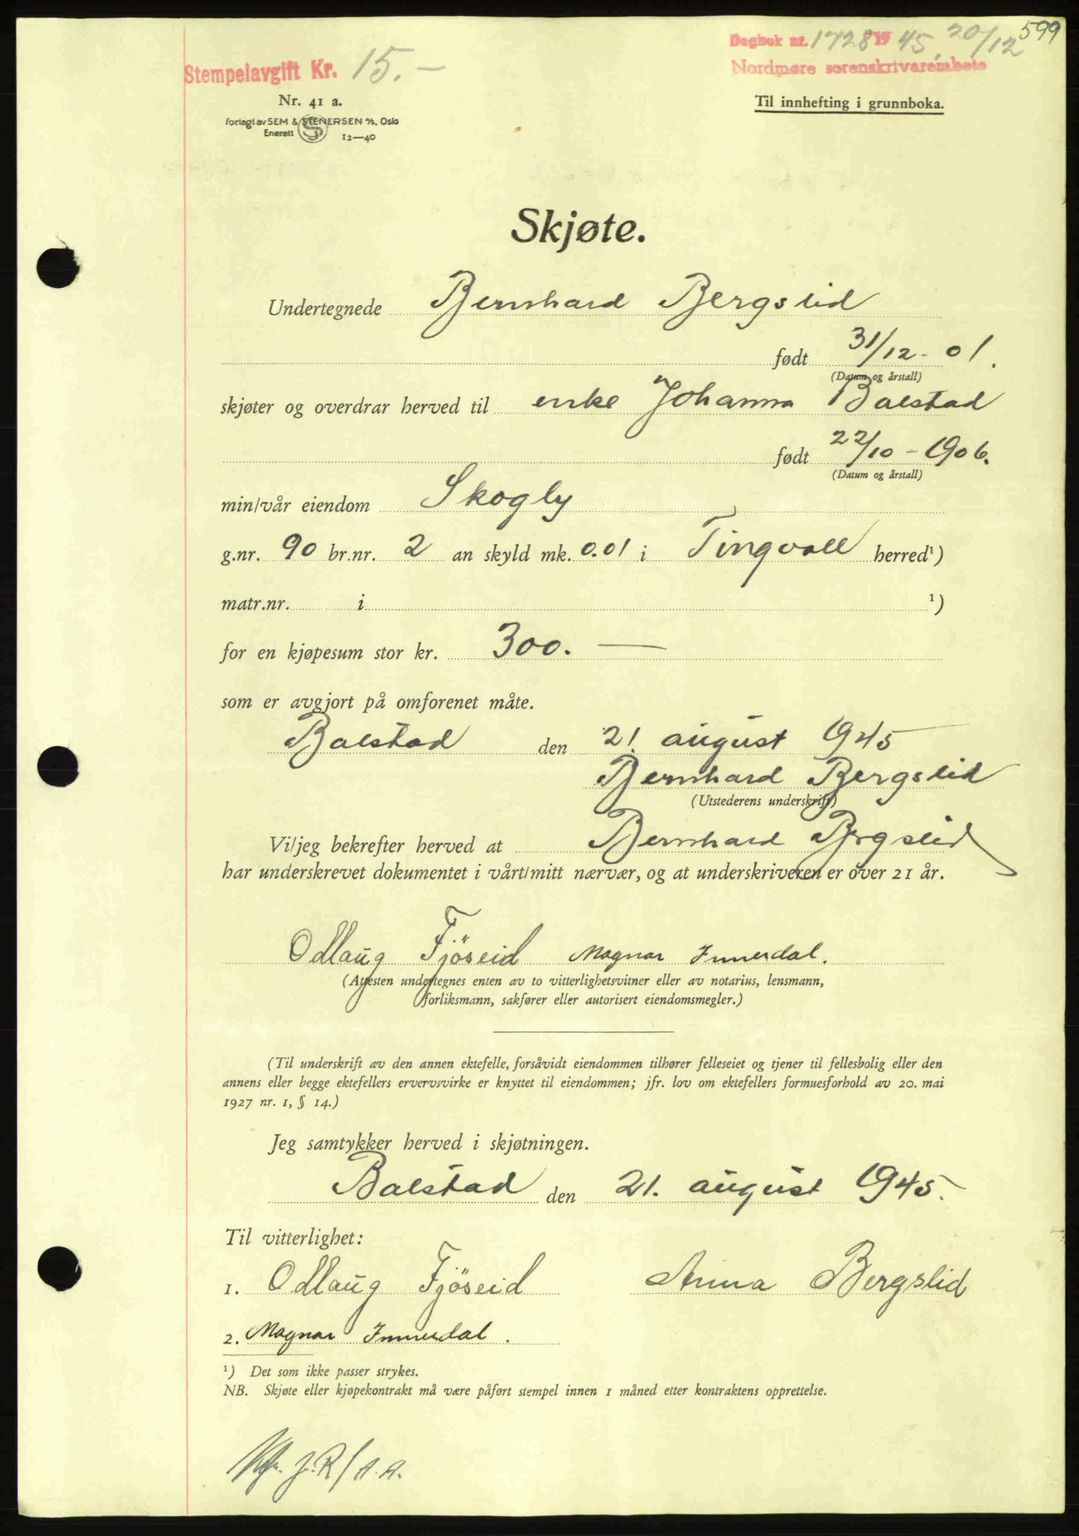 599
Dagbok nr. 1728 19 45 20/12
Nordmøre sorenskrivarembete
Stempelavgift Kr. 15.-
Nr. 41 a.
Forlagt av SEM & STENERSEN A/S, Oslo
Enerett 12—40
Til innhefting i grunnboka.
Skjøte.
Undertegnede Bernhard Bergslid
født 31/12 - 01.
(Datum og årstall)
skjøter og overdrar herved til enke Johanna Balstad
født 22/10 - 1906.
(Datum og årstall)
min/vår eiendom Skogly
g.nr. 90 br.nr. 2 an skyld mk. 0.01 i Tingvoll herred¹)
matr.nr. i ¹)
for en kjøpesum stor kr. 300. —
som er avgjort på omforenet måte.
Balstad den 21. august 1945
Bernhard Bergslid
(Utstederens underskrift)
Vi/jeg bekrefter herved at Bernhard Bergslid
har underskrevet dokumentet i vårt/mitt nærvær, og at underskriveren er over 21 år.
Odlaug Fjøseid Magnar Innerdal.
(Attesten undertegnes enten av to vitterlighetsvitner eller av notarius, lensmann,
forliksmann, sakfører eller autorisert eiendomsmegler.)
(Til underskrift av den annen ektefelle, forsåvidt eiendommen tilhører felleseiet og tjener til fellesbolig eller den
annens eller begge ektefellers ervervsvirke er knyttet til eiendommen; jfr. lov om ektefellers formuesforhold av 20. mai
1927 nr. 1, § 14.)
Jeg samtykker herved i skjøtningen.
Balstad den 21. august 1945.
Til vitterlighet:
1. Odlaug Fjøseid Anna Bergslid
2. Magnar Innerdal.
¹) Det som ikke passer strykes.
NB. Skjøte eller kjøpekontrakt må være påført stempel innen 1 måned etter kontraktens opprettelse.
J.R/A.A.